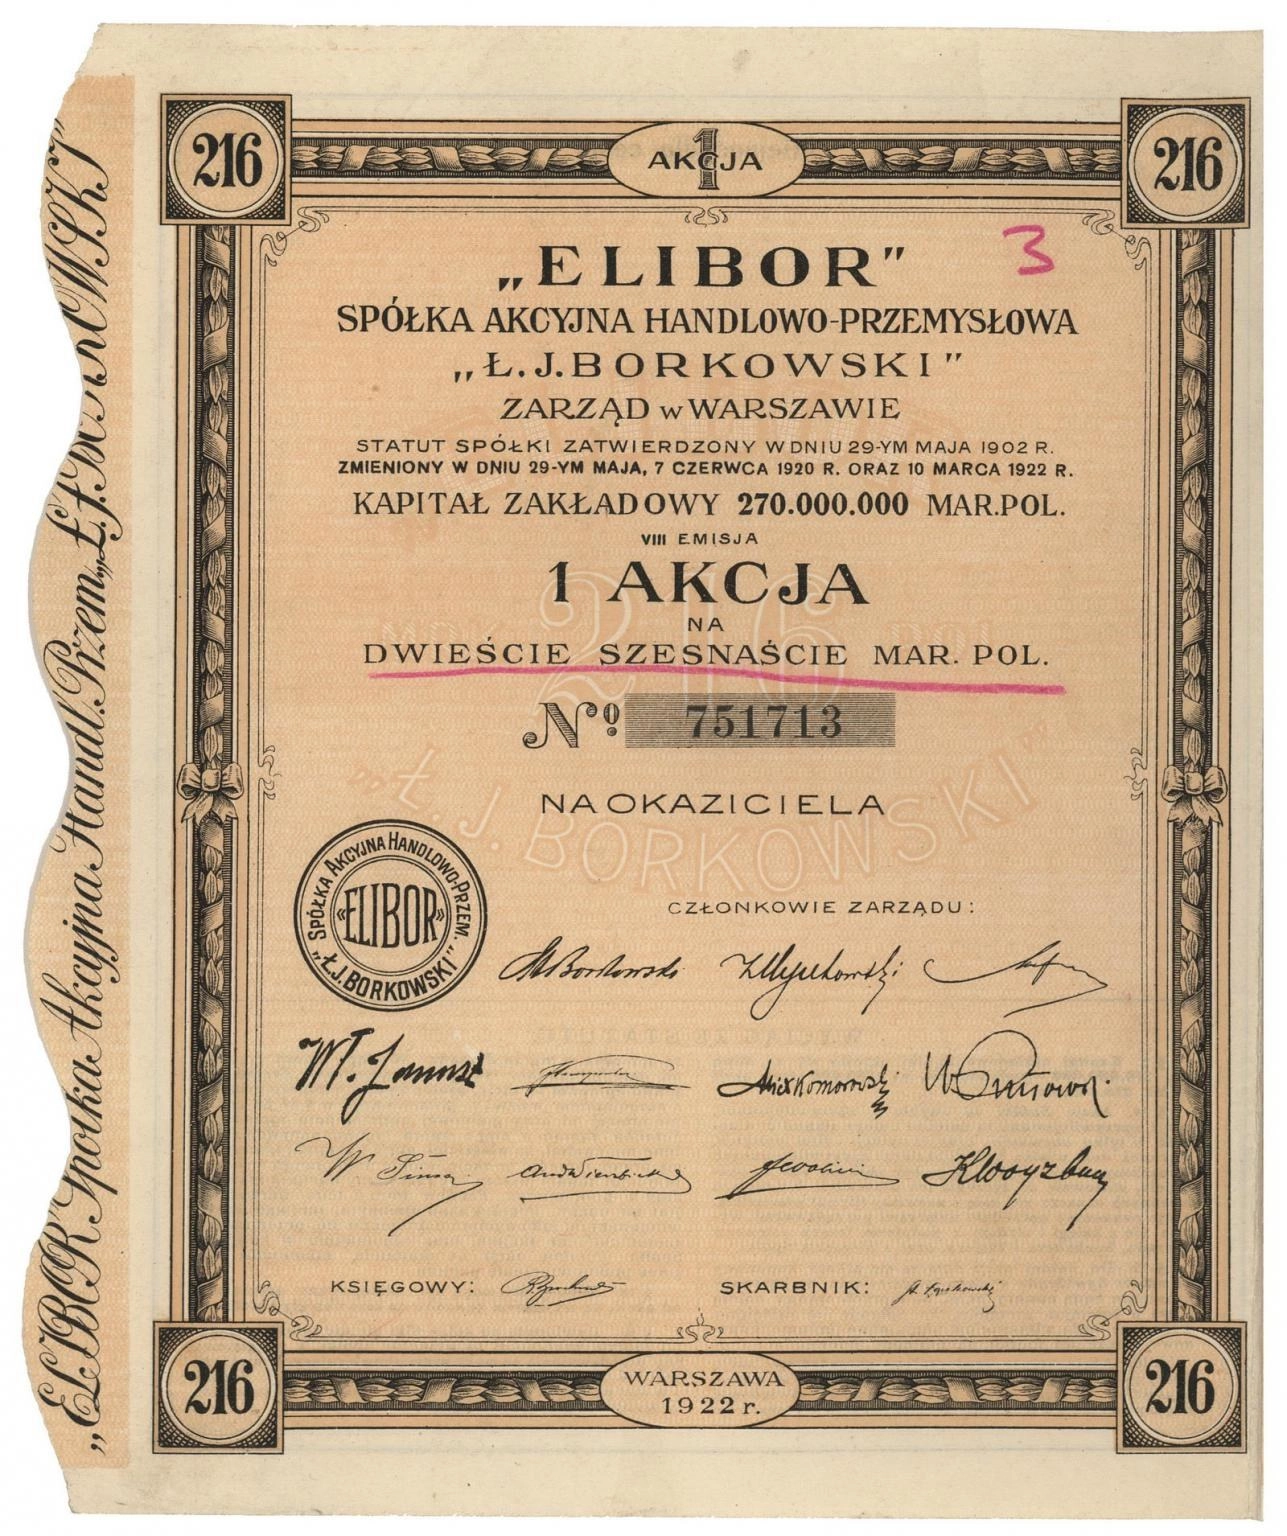 216
1
AKCJA
216
„ELIBOR"
3
SPÓŁKA AKCYJNA HANDLOWO-PRZEMYSŁOWA
„Ł. J. BORKOWSKI"
ZARZĄD w WARSZAWIE
STATUT SPÓŁKI ZATWIERDZONY W DNIU 29-YM MAJA 1902 R.
ZMIENIONY W DNIU 29-YM MAJA, 7 CZERWCA 1920 R. ORAZ 10 MARCA 1922 R.
KAPITAŁ ZAKŁADOWY 270.000.000 MAR. POL.
VIII EMISJA
1 AKCJA
NA
DWIEŚCIE SZESNAŚCIE MAR. POL.
216
No 751713
„Ł. J. BORKOWSKI"
NA OKAZICIELA
SPÓŁKA AKCYJNA HANDLOWO-PRZEM.
«ELIBOR»
„Ł.J. BORKOWSKI"
CZŁONKOWIE ZARZĄDU:
Borkowski
KSIĘGOWY:
SKARBNIK:
216
WARSZAWA
1922 r.
216
„ELIBOR" Spółka Akcyjna Handl. Przem. „Ł.J. BORKOWSKI"